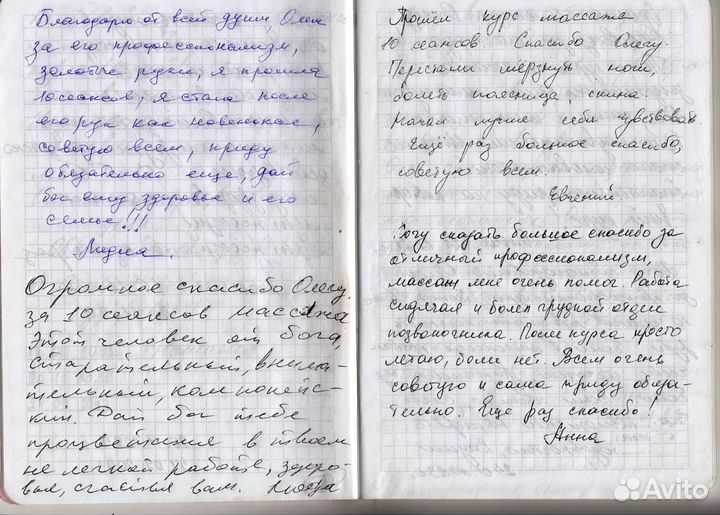 Благодарю от всей души, Олег
за его профессионализм,
золотые руки, я прошла
10 сеансов, я стала после
его рук как новенькая,
советую всем, приду
обязательно еще, дай
бог ему здоровье и его
семье!!!
Лидия.
Огромное спасибо Олегу
за 10 сеансов массажа
Этот человек от бога,
старательный, внима-
тельный, компанейс-
кий. Дай бог тебе
процветания в твоем
не легкой работе, здоро-
вья, счастья вам. Люда
Прошёл курс массажа
10 сеансов. Спасибо Олегу.
Перестали мёрзнуть ноги,
болеть поясница, спина.
Начал лучше себя чувствовать.
Ещё раз большое спасибо,
советую всем.
Евгений.
Хочу сказать большое спасибо за
отличный профессионализм,
массаж мне очень помог. Работа
сидячая и болел грудной отдел
позвоночника. После курса просто
летаю, боли нет. Всем очень
советую и сама приду обяза-
тельно. Еще раз спасибо!
Анна
Avito